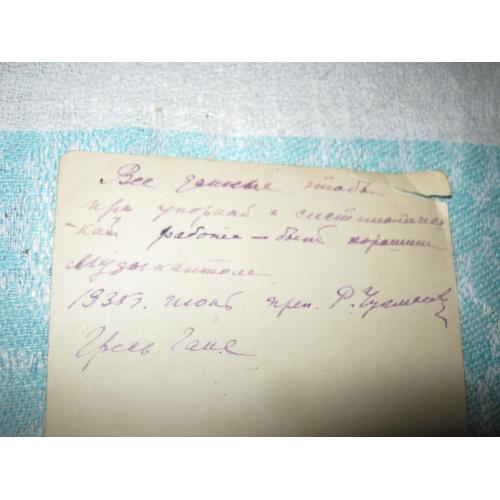 Все данные чтобы
при упорной и систематичес
-кой работе — быть хорошим
музыкантом.
1935г. июнь преп. Р.
Гале